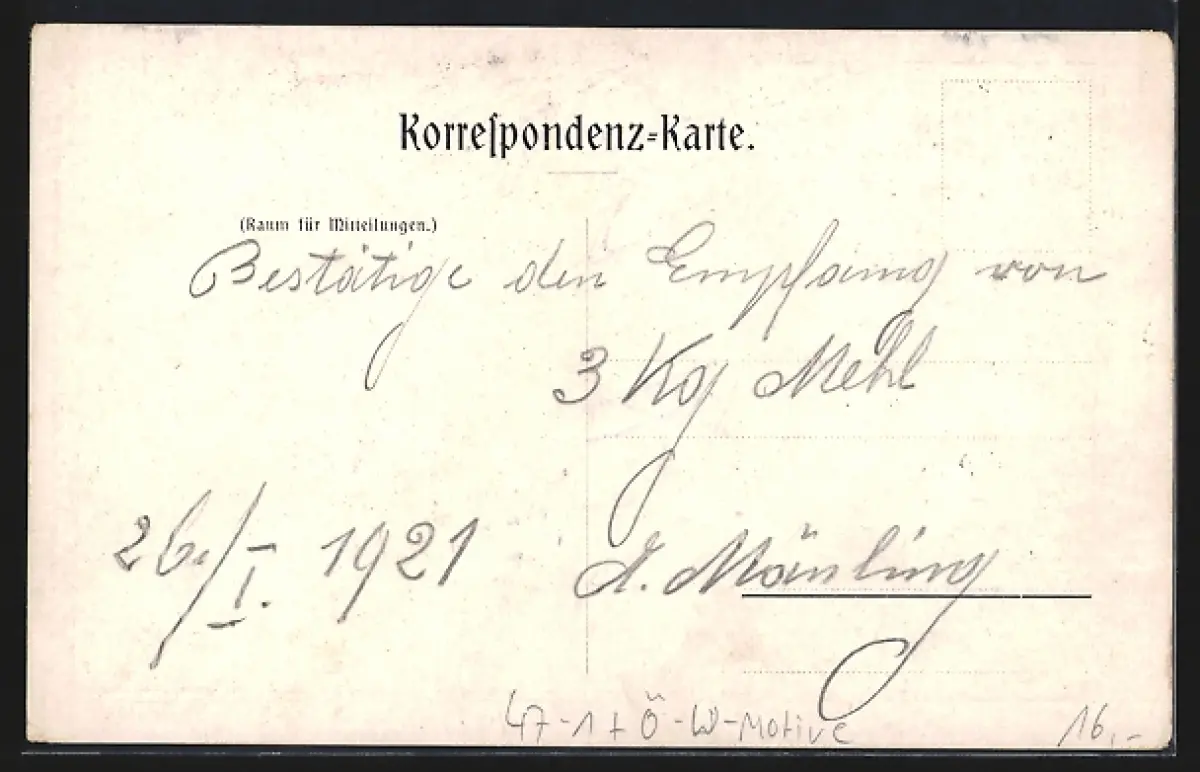 Korreſpondenz-Karte.
(Raum für Mitteilungen.)
Bestätige den Empfang von
3 Kg Mehl
26./I. 1921
A. Mänling
47-1+Ö-W-Motive
16,-